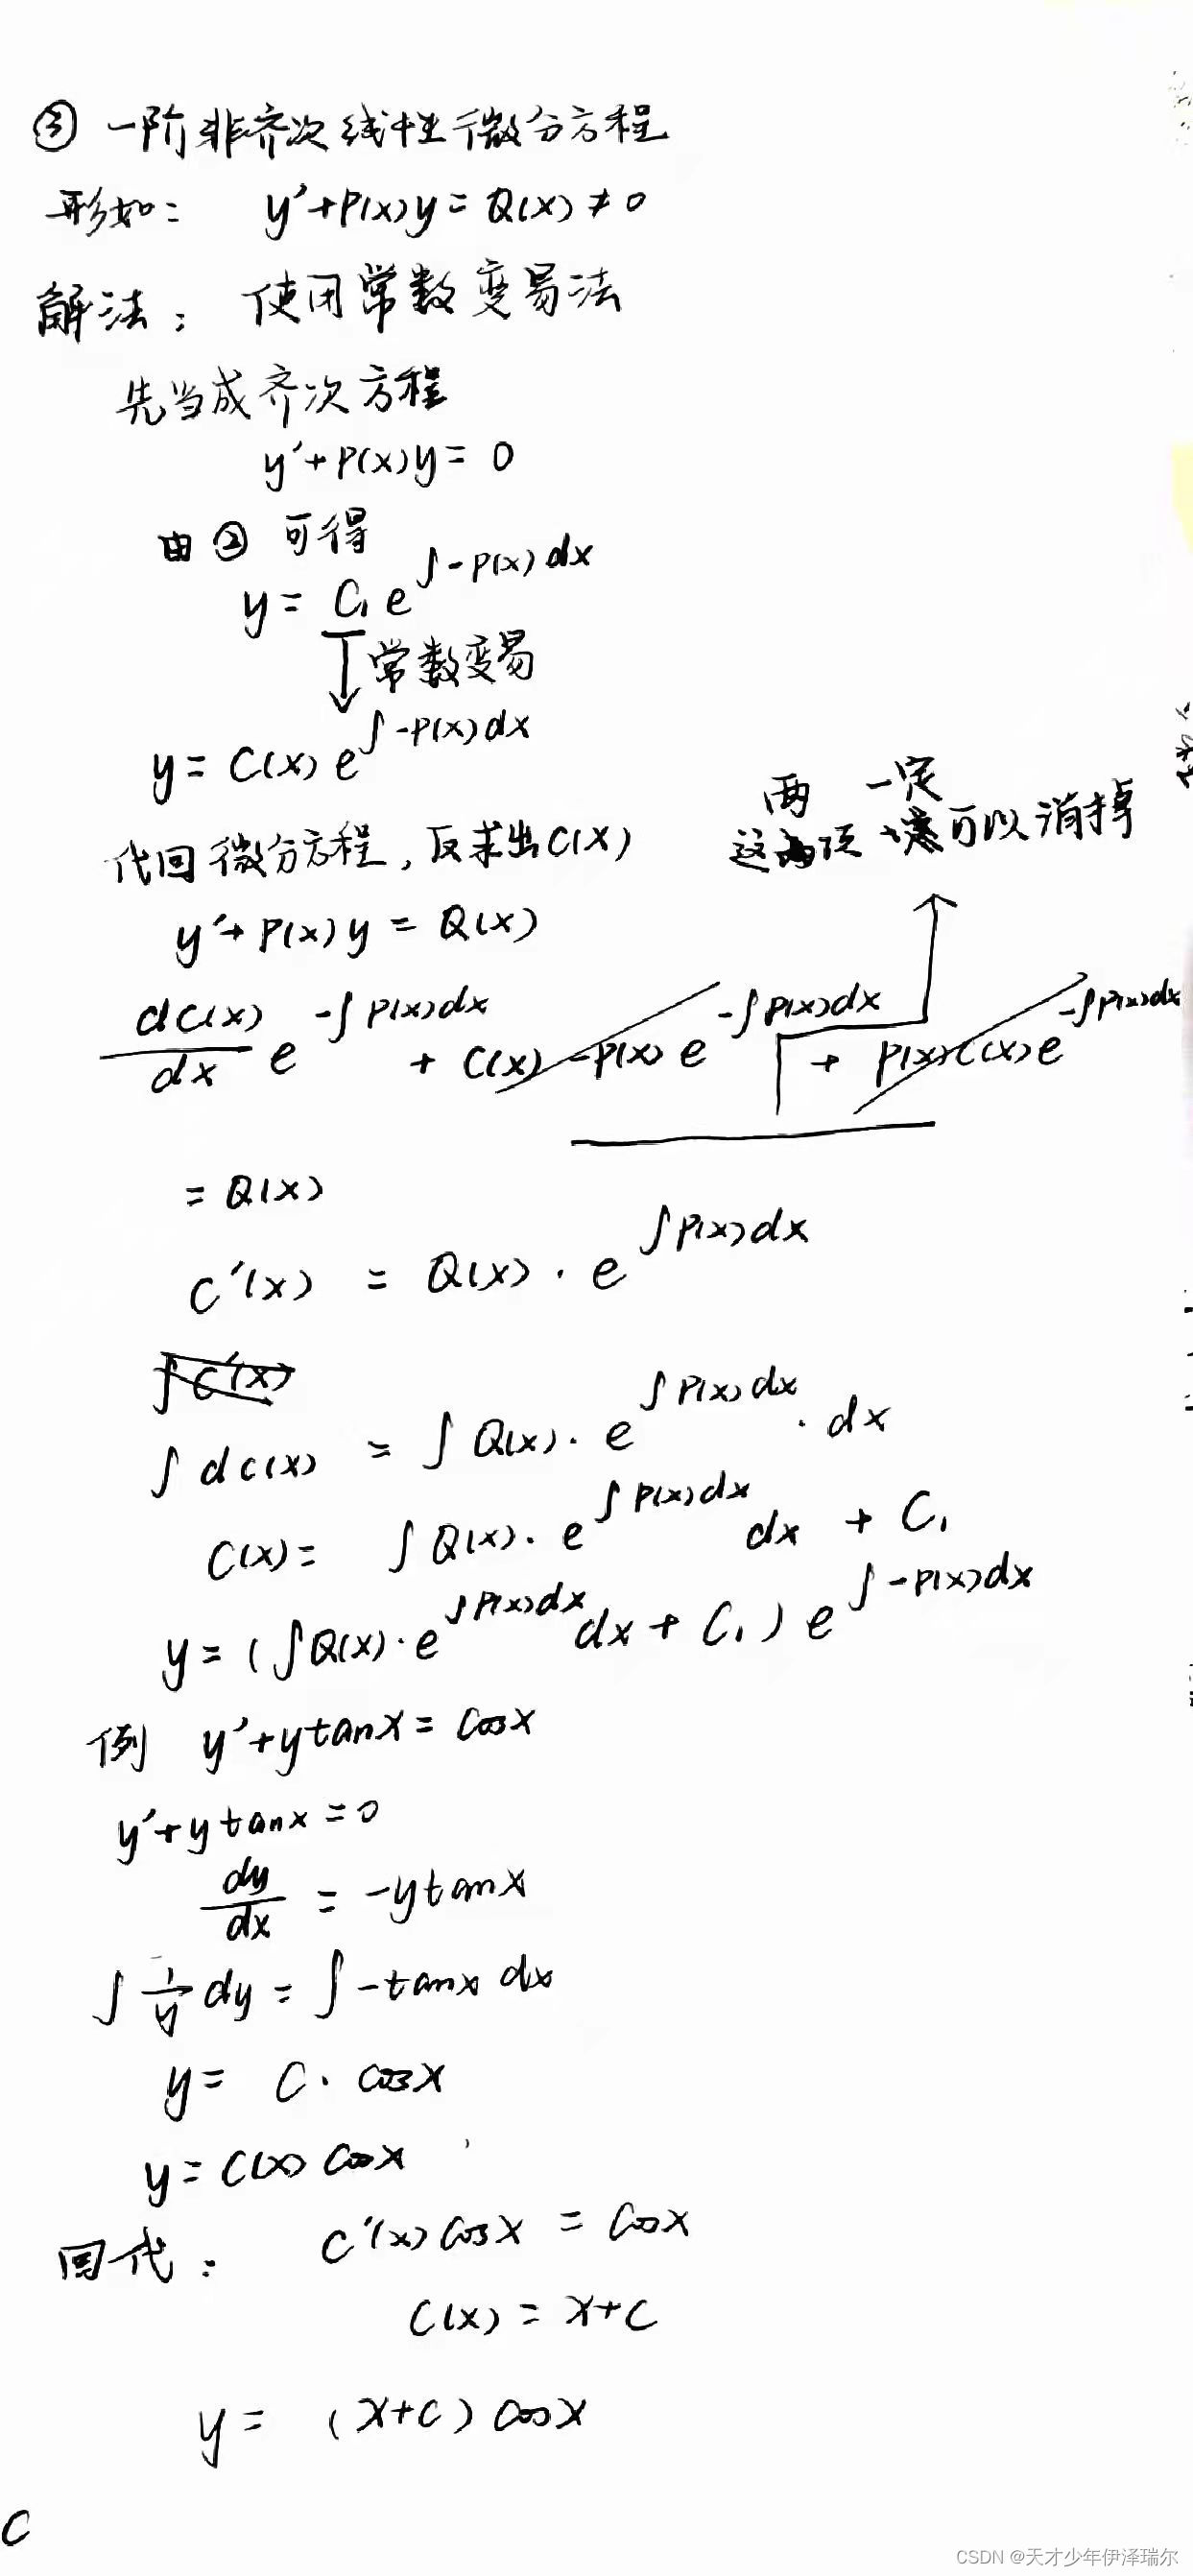 ③ 一阶非齐次线性微分方程
形如: y'+P(x)y=Q(x)≠0
解法: 使用常数变易法
先当成齐次方程
y'+P(x)y=0
由②可得
y=C₁e^∫-P(x)dx
常数变易
y=C(x)e^∫-P(x)dx
代回微分方程,反求出C(x)
两 一定
这项 可以消掉
y'+P(x)y=Q(x)
dC(x)/dx e^-∫P(x)dx + C(x) -P(x) e^-∫P(x)dx + P(x)C(x)e^-∫P(x)dx
=Q(x)
C'(x) = Q(x)·e^∫P(x)dx
∫C'(x)
∫dC(x) = ∫Q(x)·e^∫P(x)dx·dx
C(x)= ∫Q(x)·e^∫P(x)dx dx + C₁
y=(∫Q(x)·e^∫P(x)dx dx+C₁)e^∫-P(x)dx
例 y'+ytanx=cosx
y'+ytanx=0
dy/dx = -ytanx
∫1/y dy=∫-tanx dx
y= C·cosx
y=C(x)cosx
回代: C'(x)cosx=cosx
C(x)=x+C
y= (x+C)cosx
C
CSDN @天才少年伊泽瑞尔